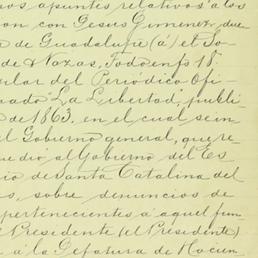 nos, apuntes relativos a los
son con Jesus Gimenez, due
a de Guadalupe (á) el So
de Nazas, Todo en fs. 18.
ular del Periódico Ofi
nado "La Libertad", publi
de 1863, en el cual se in
el Gobierno general, que re
udio al Gobierno del Es
io de Santa Catalina del
s, sobre denuncios de
pertenecientes á aquel fun
l Presidente (el Presidente)
a á la Jefatura de Hacien